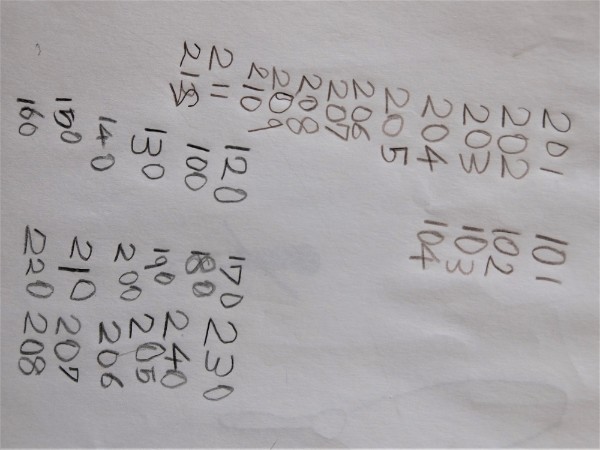 201 101
202 102
203 103
204 104
205
206
207
208
209
210
211 120 170 230
100 180 240
130 190 205
140 200 206
150 210 207
160 220 208